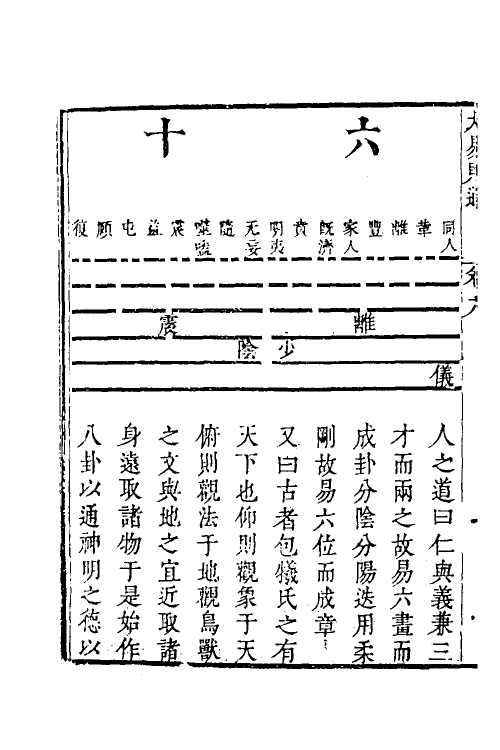 大易則通
卷六
六
十
同人
革
離
豐
家人
既濟
賁
明夷
无妄
隨
噬嗑
震
益
屯
頤
復
離
震
少
陰
儀
人之道曰仁與義兼三
才而兩之故易六畫而
成卦分陰分陽迭用柔
剛故易六位而成章
又曰古者包犧氏之有
天下也仰則觀象于天
俯則觀法于地觀鳥獸
之文與地之宜近取諸
身遠取諸物于是始作
八卦以通神明之德以